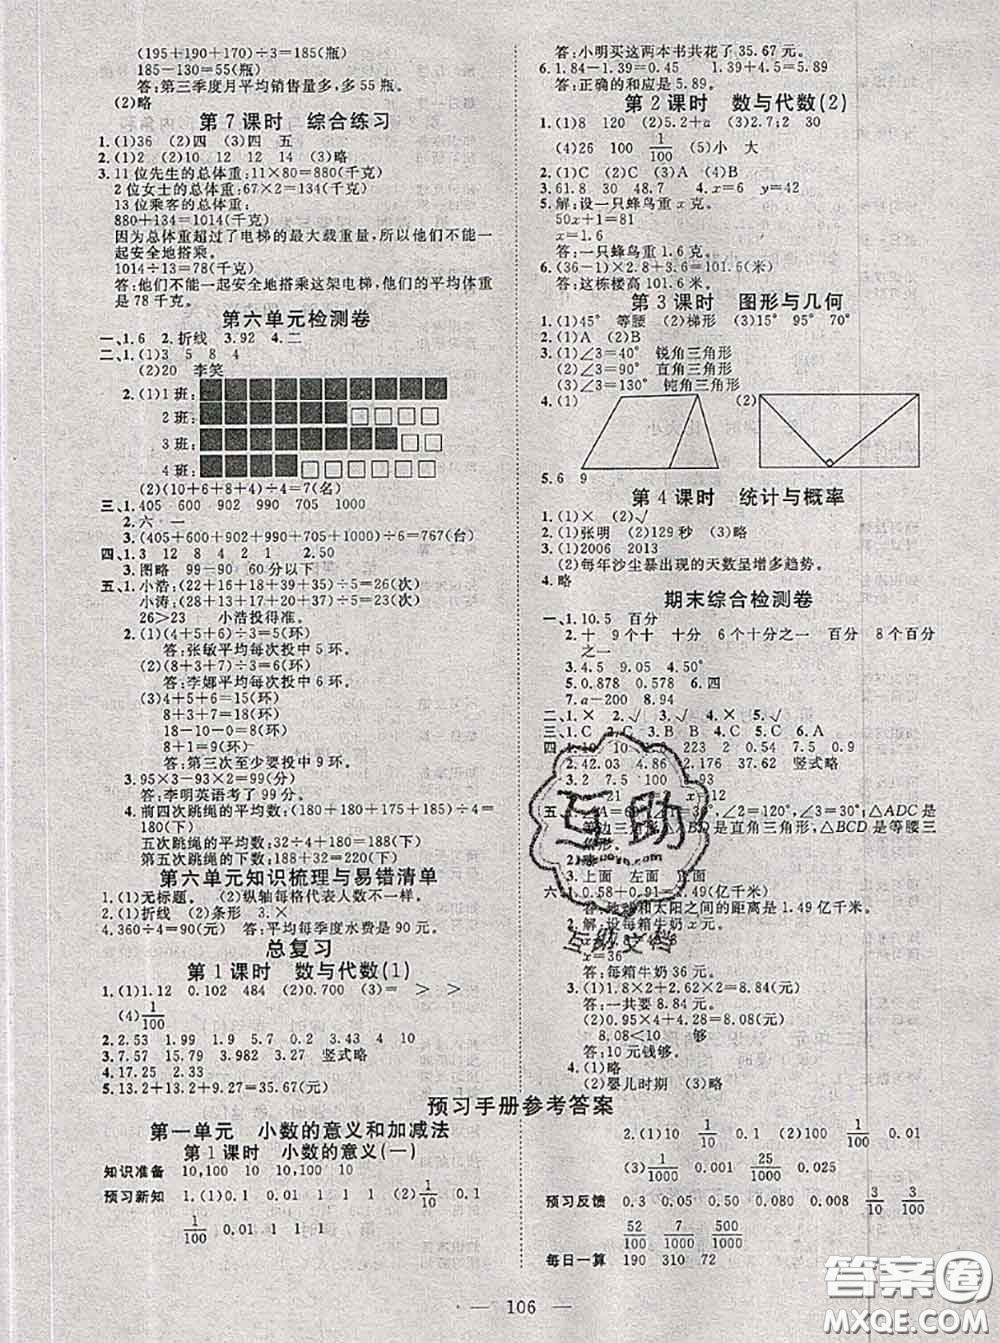 (195+190+170)÷3=185(瓶)
185-130=55(瓶)
答:第三季度月平均销售量多,多55瓶。
(2)略
第7课时 综合练习
1.(1)36 (2)四 (3)四 五
2.(1)2 10 12 14 (2)略 (3)略
3.11位先生的总体重:11×80=880(千克)
2位女士的总体重:67×2=134(千克)
13位乘客的总体重:
880+134=1014(千克)
因为总体重超过了电梯的最大载重量,所以他们不能一
起安全地搭乘。
1014÷13=78(千克)
答:他们不能一起安全地搭乘这架电梯,他们的平均体重
是78千克。
第六单元检测卷
一、1.6 2.折线 3.92 4.二
二、1.(1)3 5 8 4
(2)20 李笑
2.(1)1班:
2班:
3班:
4班:
(2)(10+6+8+4)÷4=7(名)
三、1.405 600 902 990 700 1005
2.六 一
3.(405+600+902+990+700+1005)÷6=767(台)
四、1.3 12 8 4 2 1 2.50
3.图略 99-90 60分以下
五、1.小浩:(22+16+18+39+35)÷5=26(次)
小涛:(28+13+17+31+26)÷5=23(次)
26>23 小浩投得准。
2.(1)(4+5+6)÷3=5(环)
答:张敏平均每次投中5环。
(2)(8+3+7)÷3=6(环)
答:李娜平均每次投中6环。
(3)4+5+6=15(环)
8+3+7=18(环)
18-10-0=8(环)
8+1=9(环)
答:第三次至少要投中9环。
3.95×3-93×2=99(分)
答:李明英语考了99分。
4.前四次跳绳的平均数:(180+180+180+180)÷4=
180(下)
五次跳绳的平均数:12÷4×60+8=188(下)
第五次跳绳的下数:188+32=220(下)
第六单元知识梳理与易错清单
1.(1)无标题。 (2)纵轴每格代表人数不一样。
2.(1)折线 (2)条形 3.×
4.360÷4=90(元) 答:平均每季度水费是90元。
总复习
第1课时 数与代数(1)
1.(1)1.12 0.102 484 (2)0.700 (3)= > >
(4)1/100
2.2.53 1.99 2 3.36
3.7.57 15.79 3.982 3.27 竖式略
4.17.25 2.33
5.13.2+13.2+9.27=35.67(元)
答:小明买这两本书共花了35.67元。
6.1.84-1.39=0.45 1.39+4.5=5.89
答:正确的和应是5.89。
第2课时 数与代数(2)
1.(1)8 120 (2)5.2+a (3)7.2 30
(4)26 100 1/100 (5)小 大
2.(1)C (2)C (3)A (4)B
3.61.8 30 48.7 4.x=6 y=42
5.解:设一只蜂鸟重x克。
50x+1=81
x=1.6
答:一只蜂鸟重1.6克。
6.(36-1)×2.8+3.6=101.6(米)
答:这栋楼高101.6米。
第3课时 图形与几何
1.(1)45° 等腰 (2)梯形 (3)15° 95° 70°
2.(1)A (2)B
3.(1)∠3=40° 锐角三角形
(2)∠3=90° 直角三角形
(3)∠3=130° 钝角三角形
4.(1) (2)
5.6 9
第4课时 统计与概率
1.(1)× (2)√
2.(1)张明 (2)129秒 (3)略
3.(1)2006 2013
(2)每年沙尘暴出现的天数呈增多趋势。
4.略
期末综合检测卷
一、1.10.5 百分
2.十 9个十 十分 6个十分之一 百分 8个百分
之一
3.4.5 9.05 4.50°
5.0.878 0.578 6.四
7.a-200 8.94
二、1.× 2.√ 3.√ 4.× 5.√
三、1.C 2.C 3.B 4.C 5.C 6.A
四、1.10 10 223 2 0.54 7.5 0.9
2.42.03 4.86 87.12 竖式略
3.2 7.5 100 93
x=12
五 ∠2=120°,∠3=30°;△ADC是
是直角三角形,△BCD是等腰三
3.上面 左面 正面
六、1.0.58+0.91=1.49(亿千米)
答:地球和太阳之间的距离是1.49亿千米。
2.解:设每箱牛奶x元。
x=36
答:每箱牛奶36元。
3.(1)1.24×2.6=8.84(元)
答:一共要8.84元。
(2)0.95×4+4.28=8.08(元)
8.08<10 够
答:10元钱够。
4.(1)略
(2)婴儿时期 (3)略
预习手册参考答案
第一单元 小数的意义和加减法
第1课时 小数的意义(一)
知识准备 10,100 10 10,100 10
预习新知 1.(1)0.1 0.01 1 1 (2)1/10 0.1
1/100 0.01 1 1 1
2.(1)1/10 0.1 (2)1/100 0.01
(3)1/1000 0.001 25/1000 0.025
预习反馈 0.3 0.05 0.50 0.080 0.008 3/10 3/100
52/100 7/1000 500/1000
每日一算 190 310 72
106
互助
互助文档
答案圈
MXQE.COM